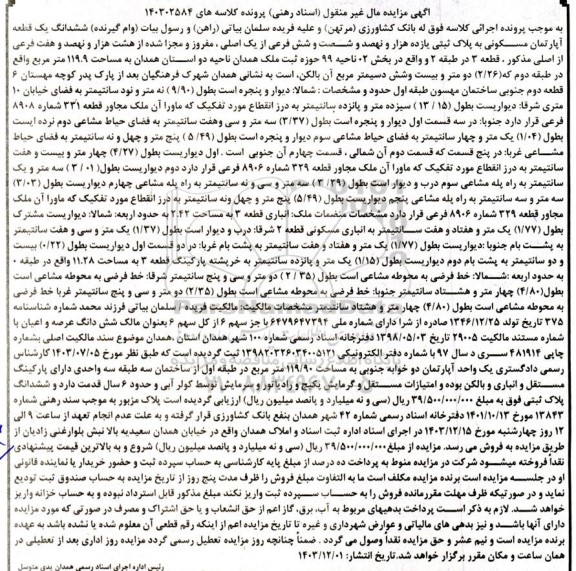 آگهی مزایده مال غیر منقول (اسناد رهنی) پرونده کلاسه های ۱۴۰۳۰۲۵۸۴
به موجب پرونده اجرائی کلاسه فوق له بانک کشاورزی (مرتهن) و علیه فریده سلمان بیاتی (راهن) و رسول بیات (وام گیرنده) ششدانگ یک قطعه
آپارتمان مسکونی به پلاک ثبتی یازده هزار و نهصد و شصت و شش فرعی از یک اصلی ، مفروز و مجزا شده از هشت هزار و نهصد و هفت فرعی
از اصلی مذکور ، قطعه ۳ در طبقه ۲ و واقع در بخش ۰۲ ناحیه ۹۹ حوزه ثبت ملک همدان ناحیه دو استان همدان به مساحت ۱۱۹.۹ متر مربع واقع
در طبقه دوم که (۲/۲۶) دو متر و بیست وشش دسیمتر مربع آن بالکن، است به نشانی همدان شهرک فرهنگیان بعد از پارک پدر کوچه مهستان ۶
قطعه دوم جنوبی ساختمان مهسون طبقه اول حدود و مشخصات : شمالا: دیوار و پنجره است بطول (۹/۹۰) نه متر و نود سانتیمتر به فضای خیابان ۱۰
متری شرقا: دیواریست بطول (۱۳/۱۵) سیزده متر و پانزده سانتیمتر به درز انقطاع مورد تفکیک که ماورا آن ملک مجاور قطعه ۳۳۱ شماره ۸۹۰۸
فرعی قرار دارد جنوبا: در سه قسمت اول دیوار و پنجره است بطول (۳/۳۷) سه متر و سی وهفت سانتیمتر به فضای حیاط مشاعی دوم نرده ایست
بطول (۱/۰۴) یک متر و چهار سانتیمتر به فضای حیاط مشاعی سوم دیوار و پنجره است بطول (۵/۴۹) پنج متر و چهل و نه سانتیمتر به فضای حیاط
مشاعی غربا: در پنج قسمت که قسمت دوم آن شمالی ، قسمت چهارم آن جنوبی است . اول دیواریست بطول (۴/۲۷) چهار متر و بیست و هفت
سانتیمتر به درز انقطاع مورد تفکیک که ماورا آن ملک مجاور قطعه ۳۲۹ شماره ۸۹۰۶ فرعی قرار دارد دوم دیواریست بطول (۳/۰۱) سه متر و یک
سانتیمتر به راه پله مشاعی سوم درب و دیوار است بطول (۳/۳۹) سه متر و سی و نه سانتیمتر به راه پله مشاعی چهارم دیواریست بطول (۳/۰۳)
سه متر و سه سانتیمتر به راه پله مشاعی پنجم دیواریست بطول (۵/۴۹) پنج متر و چهل ونه سانتیمتر به درز انقطاع مورد تفکیک که ماورا آن ملک
مجاور قطعه ۳۲۹ شماره ۸۹۰۶ فرعی قرار دارد مشخصات منضمات ملک: انباری قطعه ۳ به مساحت ۲.۴۲ به حدود اربعه: شمالا: دیواریست مشترک
بطول (۱/۷۷) یک متر و هفتاد و هفت سانتیمتر به انباری مسکونی قطعه ۲ شرقا: درب و دیوار است بطول (۱/۳۷) یک متر و سی و هفت سانتیمتر
به پشت بام جنوبا: دیواریست بطول (۱/۷۷) یک متر و هفتاد و هفت سانتیمتر به پشت بام غربا: در دو قسمت اول دیواریست بطول (۰/۲۲) بیست
و دو سانتیمتر به پشت بام دوم دیواریست بطول (۱/۱۵) یک متر و پانزده سانتیمتر به خرپشته پارکینگ قطعه ۳ به مساحت ۱۱.۲۸ واقع در طبقه ۰
به حدود اربعه : شمالا: خط فرضی به محوطه مشاعی است بطول (۲/۳۵) دو متر و سی و پنج سانتیمتر شرقا: خط فرضی به محوطه مشاعی است
بطول (۴/۸۰) چهار متر و هشتاد سانتیمتر جنوبا: خط فرضی به محوطه مشاعی است بطول (۲/۳۵) دو متر و سی و پنج سانتیمتر غربا خط فرضی
به محوطه مشاعی است بطول (۴/۸۰) چهار متر و هشتاد سانتیمتر مشخصات مالکیت: مالکیت فریده سلمان بیاتی فرزند محمد شماره شناسنامه
۳۷۵ تاریخ تولد ۱۳۴۶/۱۲/۲۵ صادره از شرا دارای شماره ملی ۶۴۷۹۶۴۷۳۹۴ با جز سهم ۶ از کل سهم ۶ بعنوان مالک شش دانگ عرصه و اعیان با
شماره مستند مالکیت ۲۹۰۰۵ تاریخ ۱۳۹۸/۰۵/۰۳ دفترخانه اسناد رسمی شماره ۱۰۰ شهر همدان استان همدان موضوع سند مالکیت اصلی بشماره
چاپی ۴۸۱۹۱۴ سری د سال ۹۷ با شماره دفتر الکترونیکی ۱۳۹۸۲۰۳۲۶۰۳۴۰۰۵۱۲۱ ثبت گردیده است که طبق نظر مورخ ۱۴۰۳/۰۷/۰۵ کارشناس
رسمی دادگستری یک واحد آپارتمان دو خوابه جنوبی به مساحت ۱۱۹/۹۰ متر مربع در طبقه اول از ساختمان سه طبقه سه واحدی دارای پارکینگ
مستقل و انباری و بالکن بوده و امتیازات مستقل و گرمایش پکیج و رادیاتور و سرمایش توسط کولر آبی و حدود ۶ سال قدمت دارد و ششدانگ
پلاک ثبتی فوق به مبلغ ۳۹/۵۰۰/۰۰۰/۰۰۰ ریال (سی و نه میلیارد و پانصد میلیون ریال) ارزیابی گردیده است پلاک مزبور به موجب سند رهنی شماره
۱۳۸۴۳ مورخ ۱۴۰۱/۱۰/۱۳ دفترخانه اسناد رسمی شماره ۴۲ شهر همدان بنفع بانک کشاورزی قرار گرفته و به علت عدم انجام تعهد از ساعت ۹ الی
۱۲ روز چهارشنبه مورخ ۱۴۰۳/۱۲/۱۵ در اجرای اسناد اداره ثبت اسناد و املاک همدان واقع در خیابان همدان سعیدیه بالا نبش بلوارغنی زادیان از
طریق مزایده به فروش می رسد. مزایده از مبلغ ۳۹/۵۰۰/۰۰۰/۰۰۰ ریال (سی و نه میلیارد و پانصد میلیون ریال) شروع و به بالاترین قیمت پیشنهادی
نقداً فروخته میشود شرکت در مزایده منوط به پرداخت ده درصد از مبلغ پایه کارشناسی به حساب سپرده ثبت و حضور خریدار یا نماینده قانونی
او در جلسه مزایده است برنده مزایده مکلف است ما به التفاوت مبلغ فروش را ظرف مدت پنج روز از تاریخ مزایده به حساب صندوق ثبت تودیع
نماید و در صورتیکه ظرف مهلت مقررمانده فروش را به حساب سپرده ثبت واریز نکند مبلغ مذکور قابل استرداد نبوده و به حساب خزانه واریز
خواهد شد. لازم به ذکر است پرداخت بدهیهای مربوط به آب، برق، گاز اعم از حق انشعاب و یا حق اشتراک و مصرف در صورتی که مورد مزایده
دارای آنها باشد و نیز بدهی های مالیاتی و عوارض شهرداری و غیره تا تاریخ مزایده اعم از اینکه رقم قطعی آن معلوم شده یا نشده باشد به عهده
برنده مزایده است و نیم عشر و حق مزایده نقداً وصول می گردد . ضمناً چنانچه روز مزایده تعطیل رسمی گردد مزایده روز اداری بعد از تعطیلی در
همان ساعت و مکان مقرر برگزار خواهد شد. تاریخ انتشار: ۱۴۰۳/۱۲/۰۱
رئیس اداره اجرای اسناد رسمی همدان